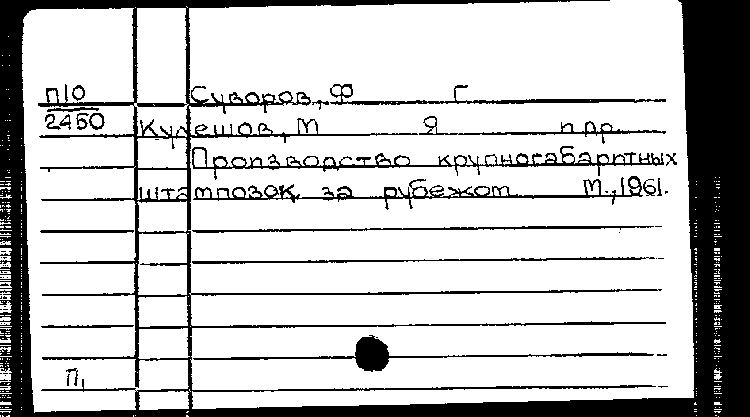 П10 Суворов, Ф Г
2450 Кулешов, М Я и др.
Производство крупногабаритных
штамповок за рубежом М., 1961.
П₁